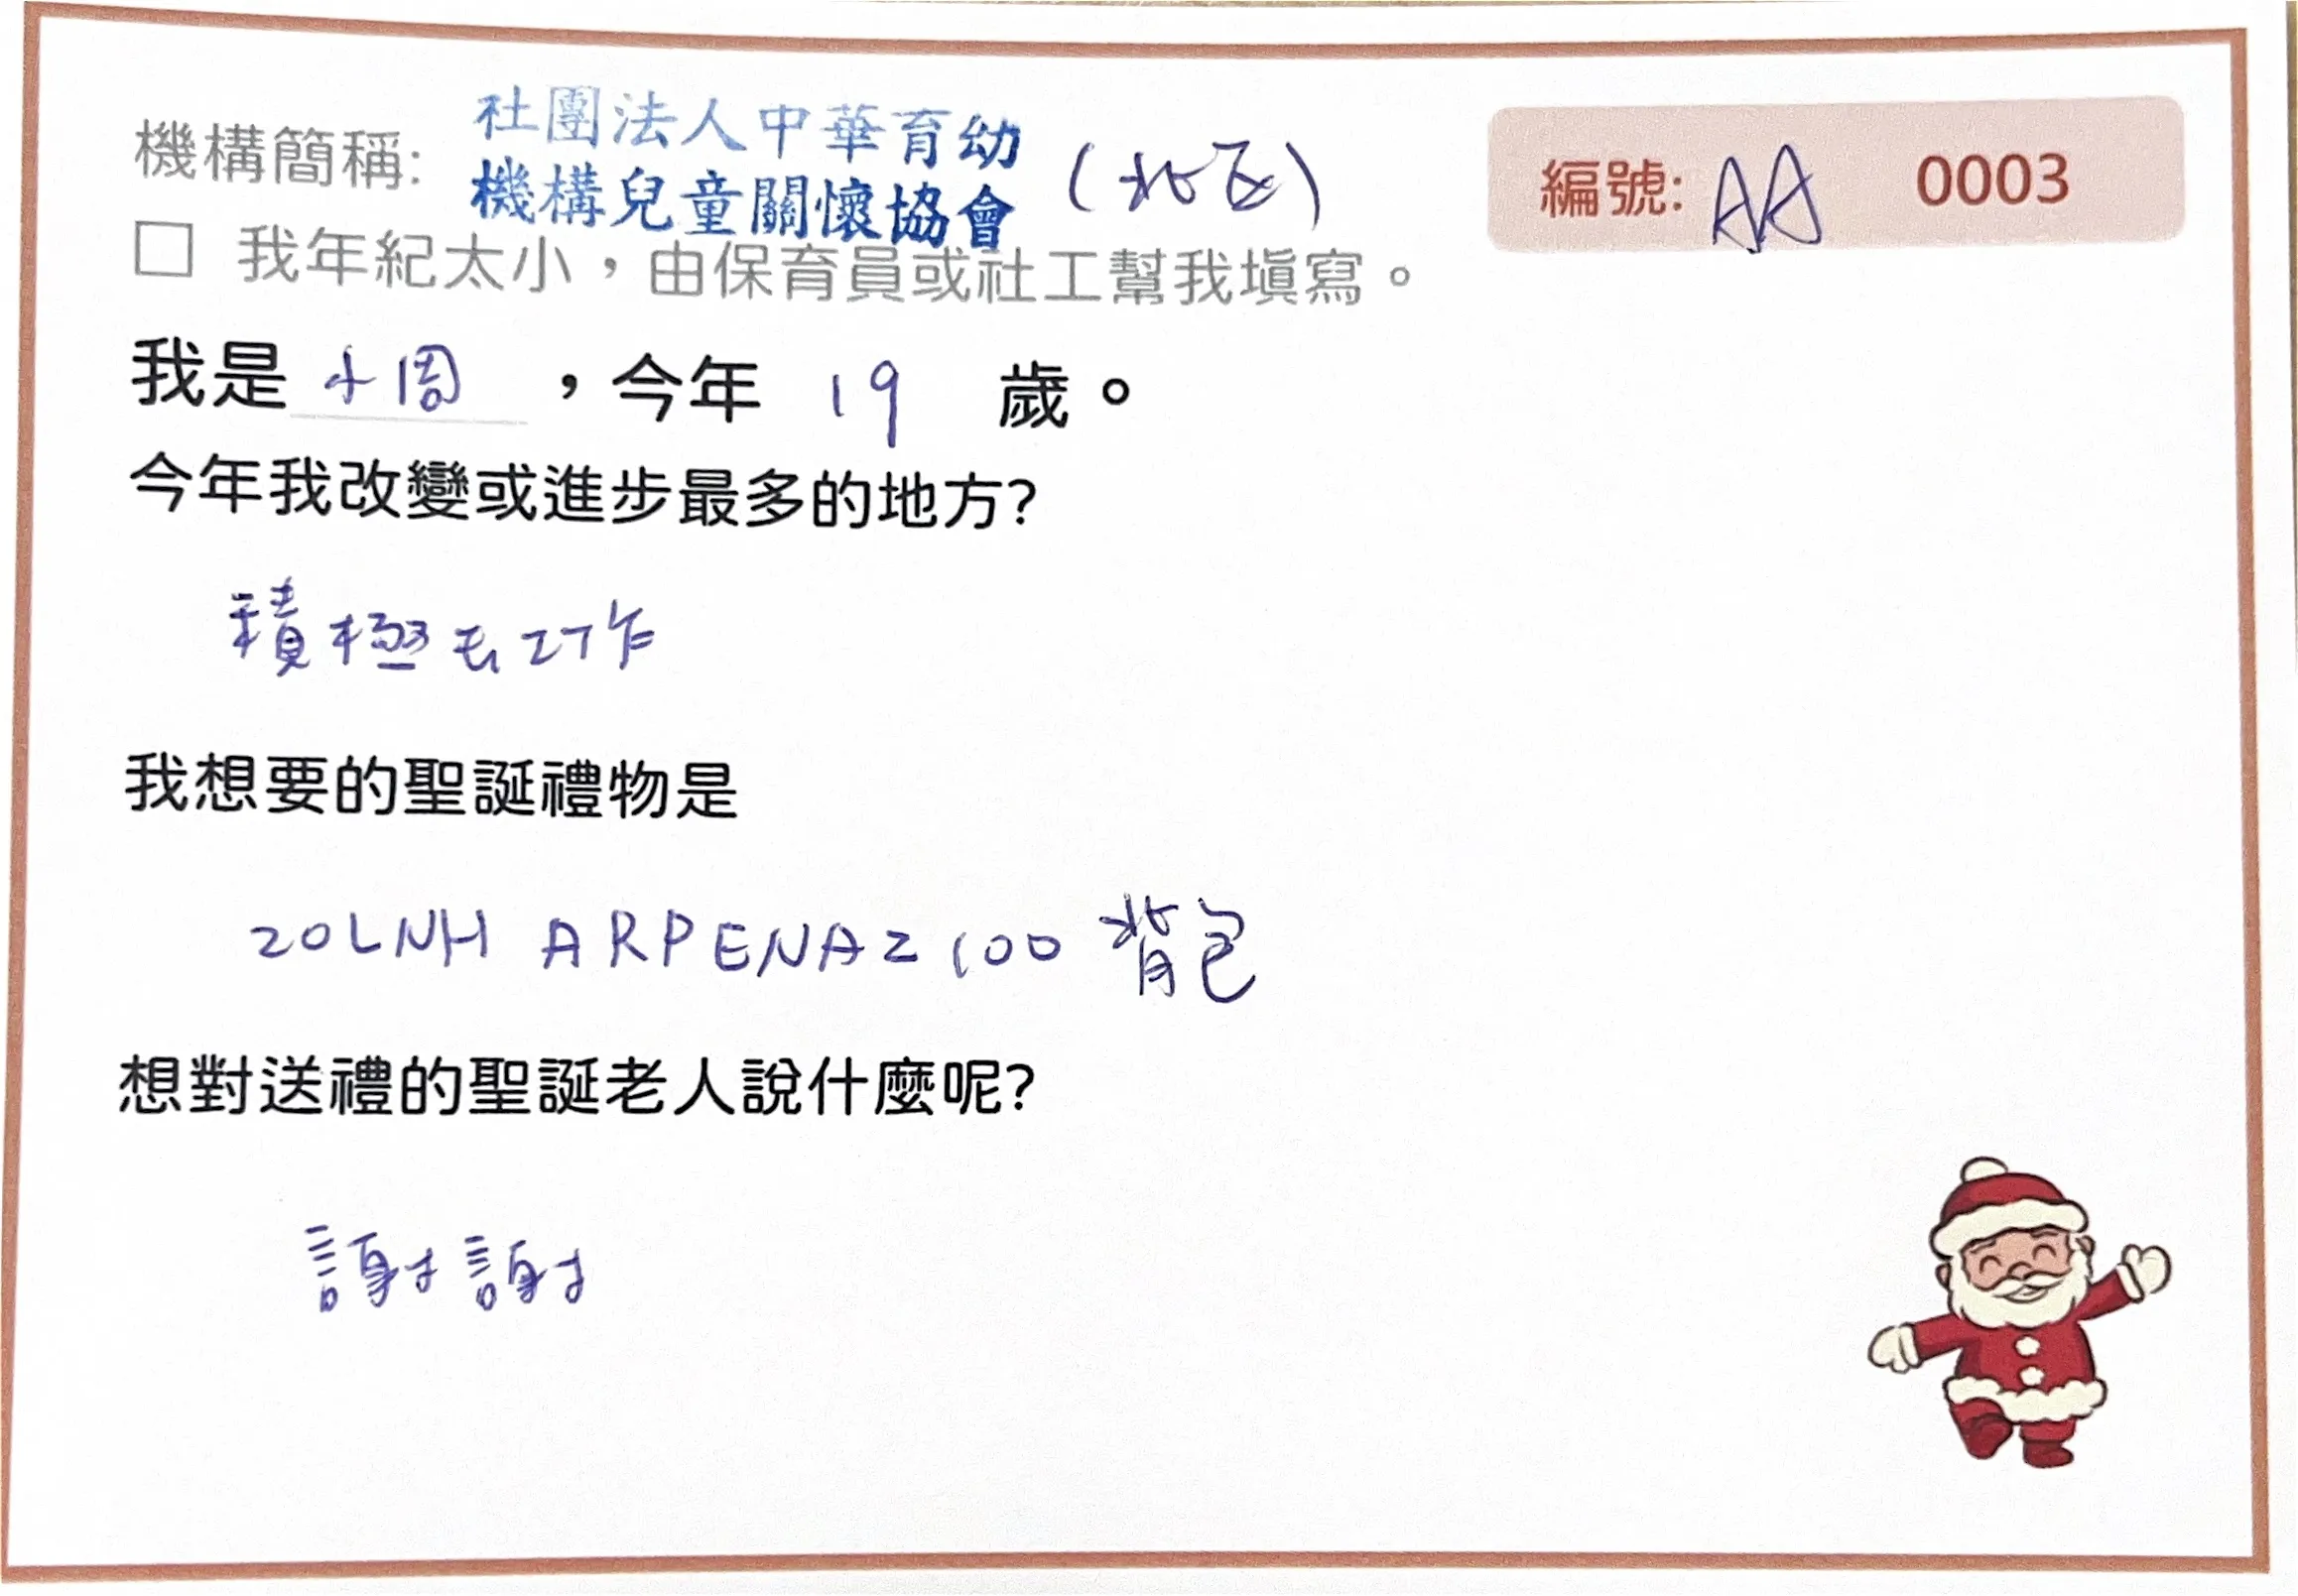 機構簡稱: 社團法人中華育幼
機構兒童關懷協會 (北区)
編號: AA 0003
我年紀太小，由保育員或社工幫我填寫。
我是 小周 ，今年 19 歲。
今年我改變或進步最多的地方?
積極去工作
我想要的聖誕禮物是
20L NH ARPENAZ 100 背包
想對送禮的聖誕老人說什麼呢?
謝謝